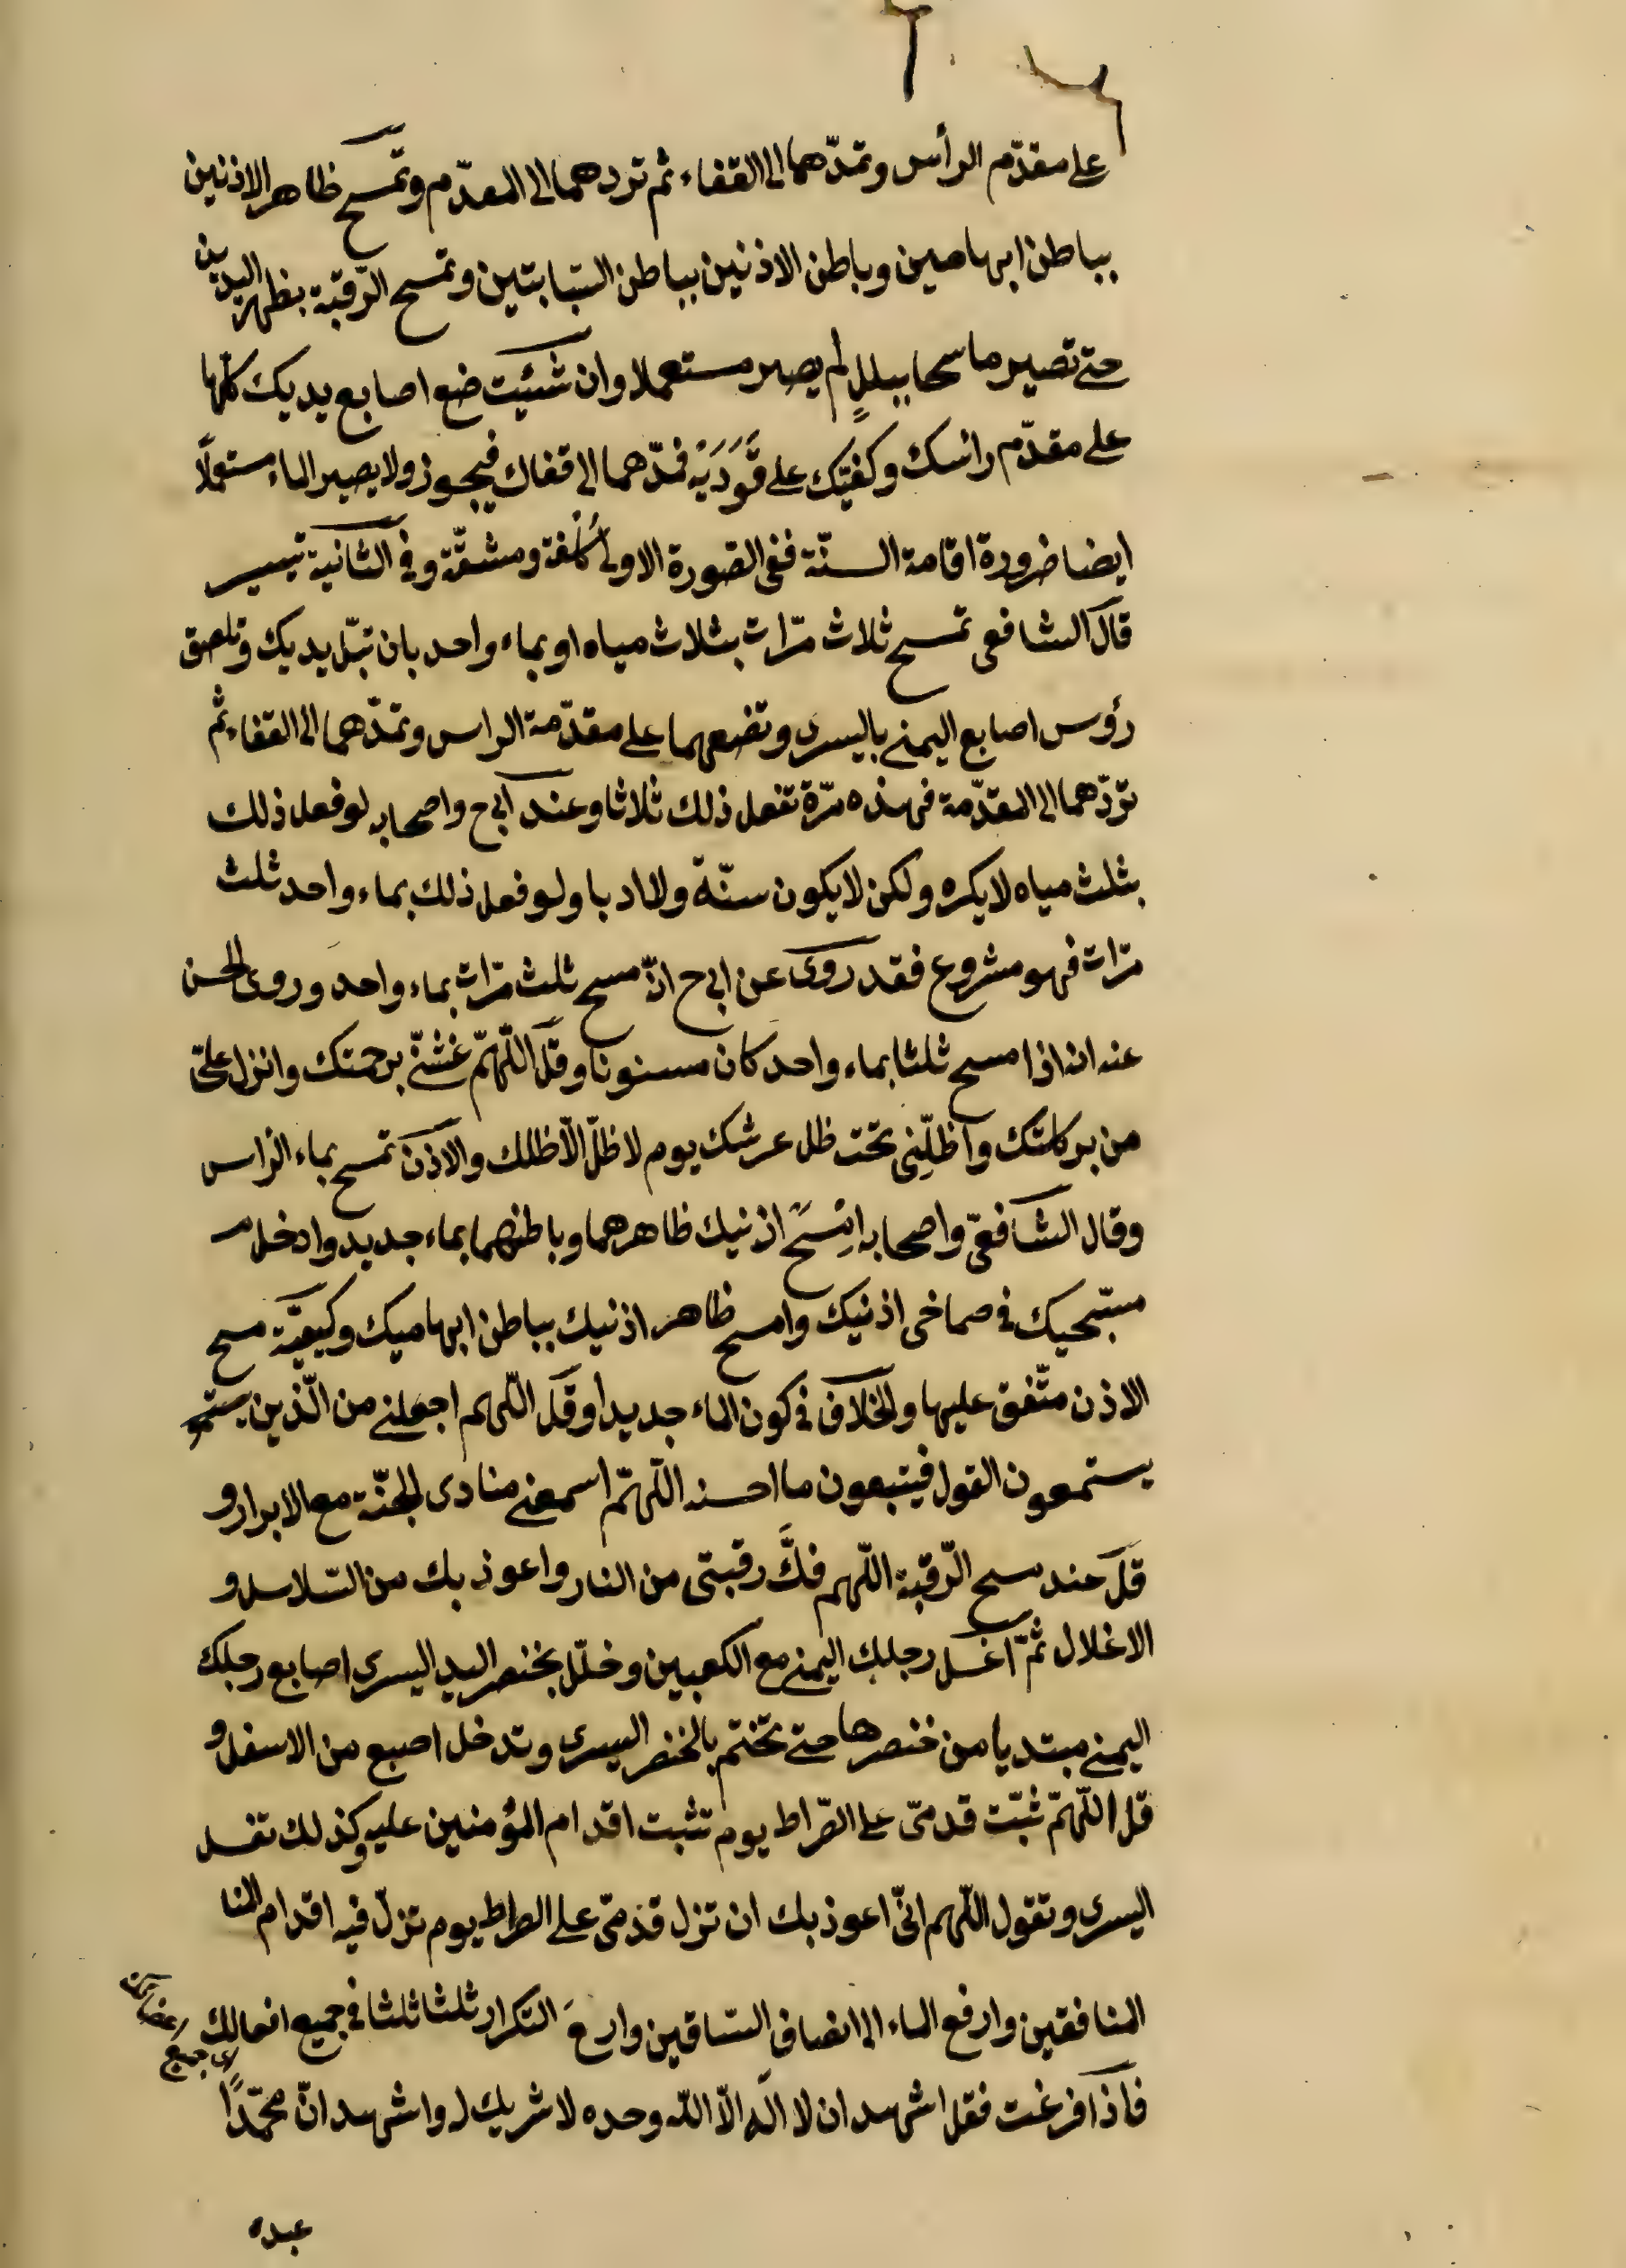 على مقدّم الرأس وتمدّهما الى القفاء ثم تردهما الى المقدّم وتمسح ظاهر الاذنين
بباطن ابهامين وباطن الاذنين بباطن السّبّابتين وتمسح الرّقبة بظهر اليدين
حتى تصير ماسحا ببللٍ لم يصر مستعملا وان شئت ضع اصابع يديك كلّها
على مقدّم رائسك وكفيّك على فَوَدَيْه فمدّهما الى قفاك فيجوز ولا يصير الماء مستعملًا
ايضا ضرورة اقامة السنّة ففى الصّورة الاولى كلفة ومشقّة وفى الثانية تيسير
قال الشافعى تمسح ثلاث مرّات بثلاث مياه او بماء واحد بان تبّل يديك وتلصق
رؤس اصابع اليمنى باليسرى وتضعهما على مقدّمة الراس وتمدّهما الى القفاء ثم
تردّهما الى المقدّمة فهذه مرّة تفعل ذلك ثلاثا وعند ابى ح واصحابه لو فعل ذلك
بثلث مياه لا يكره ولكن لا يكون سنّة ولا ادبا ولو فعل ذلك بماء واحد ثلث
مرّات فهو مشروع فقد روى عن ابى ح انّه مسح ثلث مرّات بماء واحد وروى الحسن
عنه انه اذا مسح ثلثا بماء واحد كان مسنونا وقل اللّهمّ غشّنى برحمتك وانزل علىّ
من بركاتك واظلّنِى تحت ظل عرشك يوم لا ظلّ الّا ظلك والاذن تمسح بماء الراس
وقال الشافعىّ واصحابه امْسَحْ اذنيك ظاهرهما وباطنهما بماء جديد وادخل مـ
مسبّحيك فى صماخى اذنيك وامسح ظاهر اذنيك بباطن ابهاميك وكيفيّة مسح
الاذن متّفق عليها والخلاف فى كون الماء جديدا وقل اللّهم اجعلنى من الّذين يستمعو
يستمعون القول فيتبعون ما احسنه اللّهمّ اسمعنى منادى الجنّة مع الابرار و
قل عند مسح الرّقبة اللّهم فكَّ رقبتى من النار واعوذ بك من السّلاسل و
الاغلال ثمّ اغسل رجلك اليمنى مع الكعبين وخلّل بخنصر اليد اليسرى اصابع رجلك
اليمنى مبتديا من خنصرها حتى تختم بالخنصر اليسرى وتدخل اصبع من الاسفل و
قل اللّهمّ ثبّت قدمىّ على الصّراط يوم تثبت اقدام المؤمنين عليه وكذلك تغسل
اليسرى وتقول اللّهم انّى اعوذ بك ان تزل قدمىّ على الصراط يوم تزلّ فيه اقدام المنا
المنافقين وارفع الماء الى انصاف السّاقين وارعَ التكرار ثلثا ثلثا فى جميع افعالك
اى جميع
فاذا فرغت فقل اشهد ان لا اله الّا اللّه وحده لا شريك له واشهد انّ محمّدًا
عبده